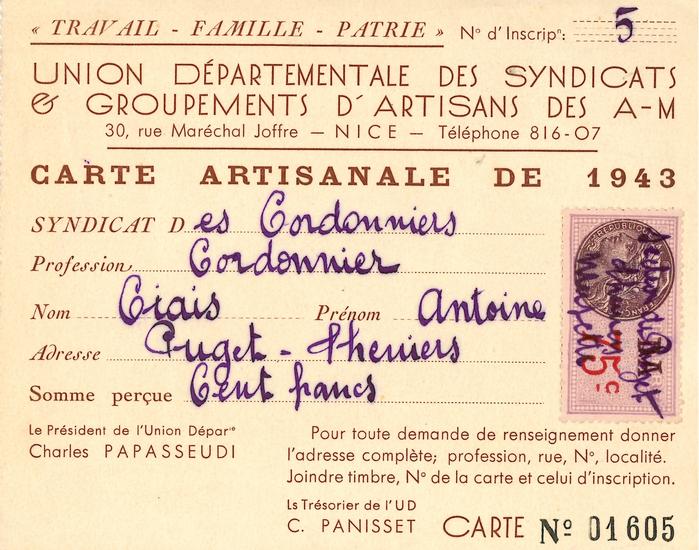 « TRAVAIL - FAMILLE - PATRIE » N° d'Inscripn: 5
UNION DÉPARTEMENTALE DES SYNDICATS
& GROUPEMENTS D'ARTISANS DES A-M
30, rue Maréchal Joffre — NICE — Téléphone 816-07
CARTE ARTISANALE DE 1943
SYNDICAT Des Cordonniers
Profession Cordonnier
Nom Ciais Prénom Antoine
Adresse Puget-Theniers
Somme perçue Cent francs
RÉPUBLIQUE FRANÇAISE
75 c
Le Président de l'Union Déparle
Charles PAPASSEUDI
Pour toute demande de renseignement donner
l'adresse complète; profession, rue, N°, localité.
Joindre timbre, N° de la carte et celui d'inscription.
Ls Trésorier de l'UD
C. PANISSET
CARTE N° 01605